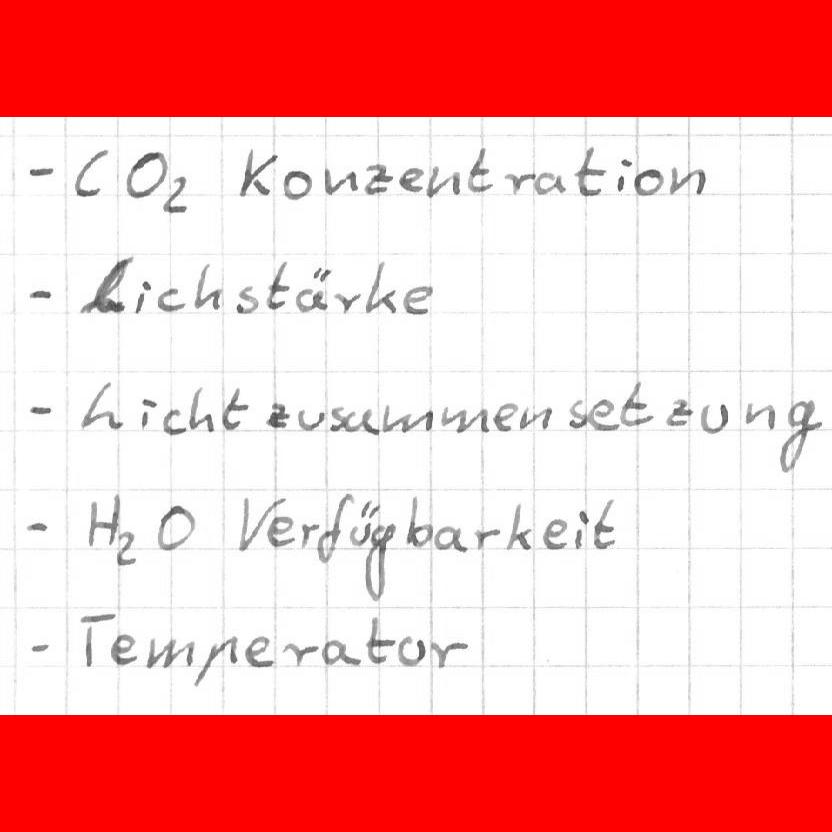 - CO₂ Konzentration
- Lichstärke
- Lichtzusammensetzung
- H₂O Verfügbarkeit
- Temperatur